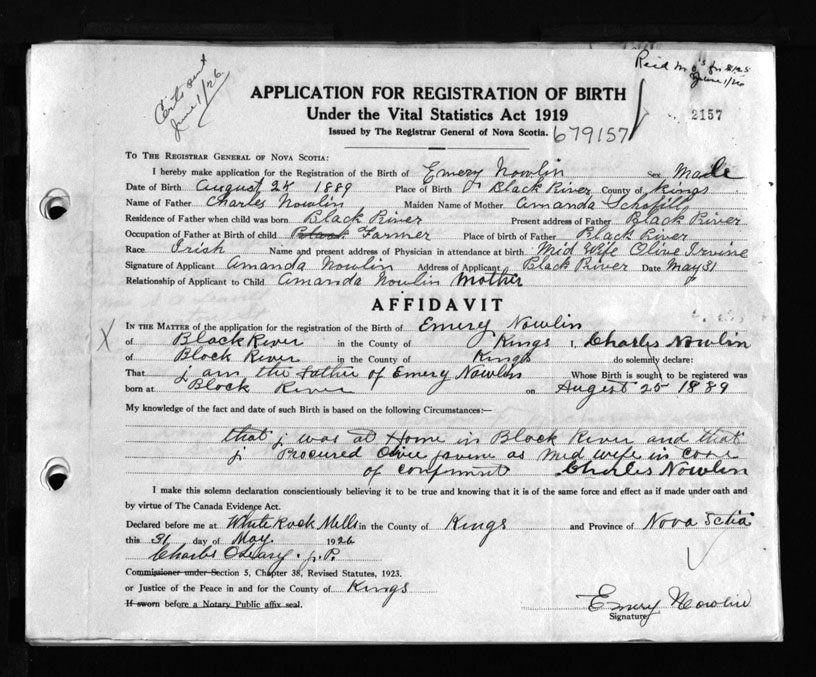 Certs sent
June 1/26
Reid in
June 1/26
APPLICATION FOR REGISTRATION OF BIRTH
Under the Vital Statistics Act 1919
2157
Issued by The Registrar General of Nova Scotia.
679157
TO THE REGISTRAR GENERAL OF NOVA SCOTIA:
I hereby make application for the Registration of the Birth of Emery Nowlin Sex Male
Date of Birth August 25 1889 Place of Birth Black River County of Kings
Name of Father Charles Nowlin Maiden Name of Mother Amanda Schofill
Residence of Father when child was born Black River Present address of Father Black River
Occupation of Father at Birth of child Black Farmer Place of birth of Father Black River
Race Irish Name and present address of Physician in attendance at birth Mid Wife Olive Irvine
Signature of Applicant Amanda Nowlin Address of Applicant Black River Date May 31
Relationship of Applicant to Child Amanda Nowlin Mother
AFFIDAVIT
X
IN THE MATTER of the application for the registration of the Birth of Emery Nowlin
of Black River in the County of Kings I, Charles Nowlin
of Block River in the County of Kings do solemnly declare:
That j am the Father of Emery Nowlin Whose Birth is sought to be registered was
born at Block River on August 25 1889
My knowledge of the fact and date of such Birth is based on the following Circumstances:—
that j was at Home in Black River and that
j Procured Olive jrvine as Mid wife in Case
of confinment Charles Nowlin
I make this solemn declaration conscientiously believing it to be true and knowing that it is of the same force and effect as if made under oath and
by virtue of The Canada Evidence Act.
Declared before me at White Rock Mills in the County of Kings and Province of Nova Scotia
this 31 day of May 1926
Charles O'Leary. J. P.
Commissioner under Section 5, Chapter 38, Revised Statutes, 1923.
or Justice of the Peace in and for the County of Kings
If sworn before a Notary Public affix seal.
Emery Nowlin
Signature